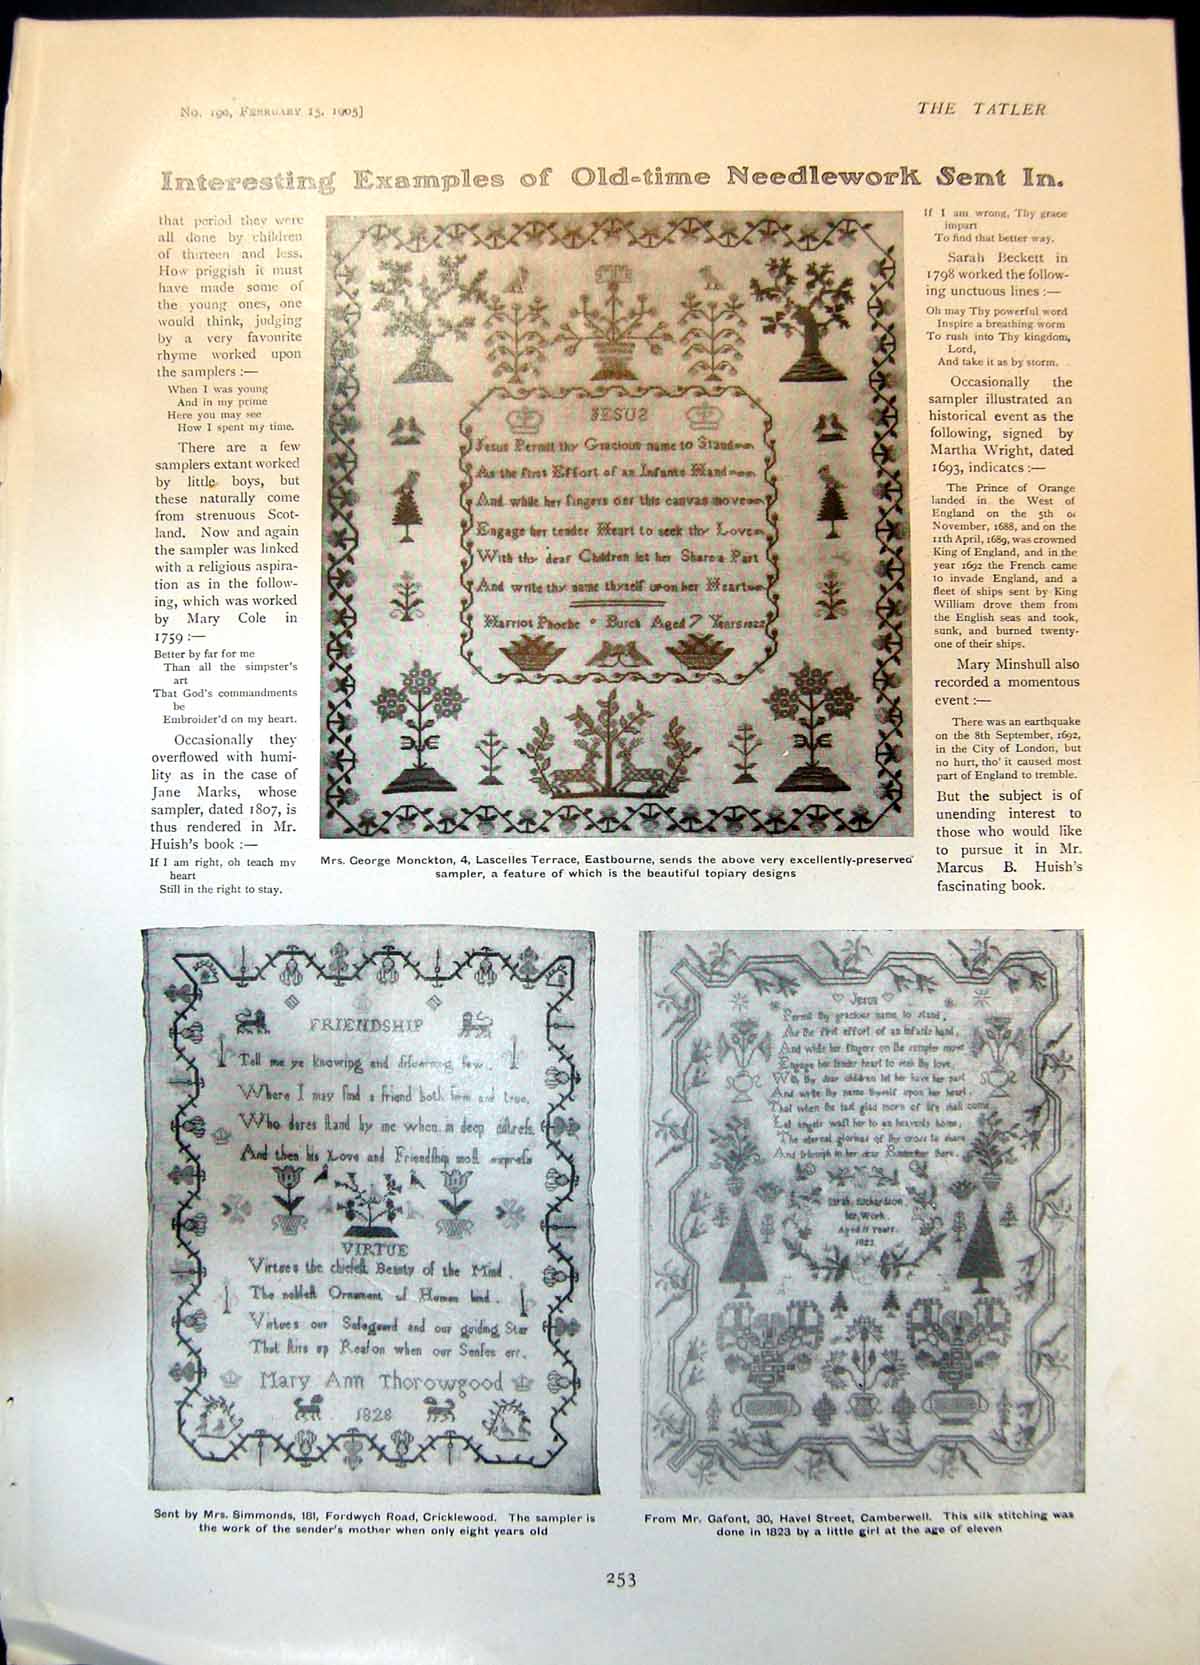 No. 190, February 15, 1905]
THE TATLER
Interesting Examples of Old-time Needlework Sent In.
that period they were
all done by children
of thirteen and less.
How priggish it must
have made some of
the young ones, one
would think, judging
by a very favourite
rhyme worked upon
the samplers :—
When I was young
And in my prime
Here you may see
How I spent my time.
There are a few
samplers extant worked
by little boys, but
these naturally come
from strenuous Scot-
land. Now and again
the sampler was linked
with a religious aspira-
tion as in the follow-
ing, which was worked
by Mary Cole in
1759 :—
Better by far for me
Than all the simpster's
art
That God's commandments
be
Embroider'd on my heart.
Occasionally they
overflowed with humi-
lity as in the case of
Jane Marks, whose
sampler, dated 1807, is
thus rendered in Mr.
Huish's book :—
If I am right, oh teach my
heart
Still in the right to stay.
JESUS
Jesus Permit thy Gracious name to Stand
As the first Effort of an Infants Hand
And while her fingers oer this canvas move
Engage her tender Heart to seek thy Love
With thy dear Children let her Share a Part
And write thy name thyself upon her Heart
Harriot Phoebe Burch Aged 7 Years 1822
Mrs. George Monckton, 4, Lascelles Terrace, Eastbourne, sends the above very excellently-preserved
sampler, a feature of which is the beautiful topiary designs
If I am wrong, Thy grace
impart
To find that better way.
Sarah Beckett in
1798 worked the follow-
ing unctuous lines :—
Oh may Thy powerful word
Inspire a breathing worm
To rush into Thy kingdom,
Lord,
And take it as by storm.
Occasionally the
sampler illustrated an
historical event as the
following, signed by
Martha Wright, dated
1693, indicates :—
The Prince of Orange
landed in the West of
England on the 5th of
November, 1688, and on the
11th April, 1689, was crowned
King of England, and in the
year 1692 the French came
to invade England, and a
fleet of ships sent by King
William drove them from
the English seas and took,
sunk, and burned twenty-
one of their ships.
Mary Minshull also
recorded a momentous
event :—
There was an earthquake
on the 8th September, 1692,
in the City of London, but
no hurt, tho' it caused most
part of England to tremble.
But the subject is of
unending interest to
those who would like
to pursue it in Mr.
Marcus B. Huish's
fascinating book.
FRIENDSHIP
Tell me ye knowing and discerning few
Where I may find a friend both firm and true,
Who dares stand by me when in deep distress
And then his Love and Friendship most express
VIRTUE
Virtues the chiefest Beauty of the Mind
The noblest Ornament of Human kind
Virtues our Safeguard and our guiding Star
That stirs up Reason when our Senses err.
Mary Ann Thorowgood
1828
Sent by Mrs. Simmonds, 181, Fordwych Road, Cricklewood. The sampler is
the work of the sender's mother when only eight years old
Jesus
Permit thy gracious name to stand,
As the first effort of an infants hand,
And while her fingers on the sampler move
Engage her tender heart to seek thy love,
With thy dear children let her have her part
And write thy name thyself upon her heart
That when the last glad morn of life shall come
Let angels waft her to an heavenly home,
The eternal glories of thy cross to share
And triumph in her dear Redeemer there.
Sarah Richardson
her Work
Aged 11 Years
1823
From Mr. Gafont, 30, Havel Street, Camberwell. This silk stitching was
done in 1823 by a little girl at the age of eleven
253